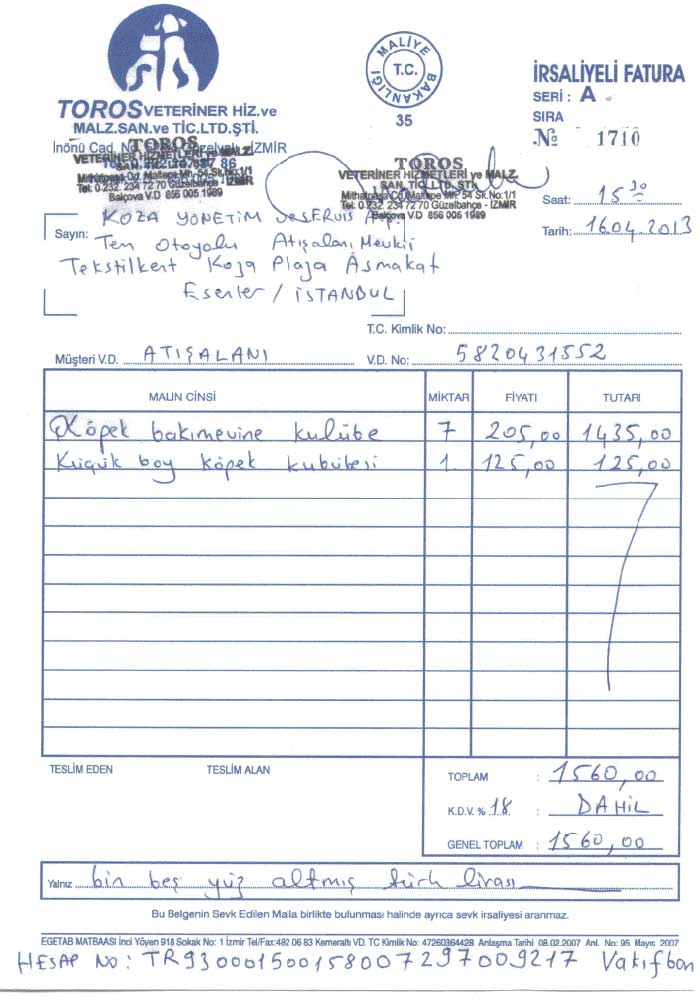 TOROS VETERİNER HİZ.ve
MALZ.SAN.ve TİC.LTD.ŞTİ.
İnönü Cad. No İZMİR
TOROS
VETERİNER HİZMETLERİ ve MALZ.
Tel: 0.232 234 72 70 Güzelbahçe - İZMİR
Balçova V.D 856 005 1989
MALİYE BAKANLIĞI
T.C.
35
İRSALİYELİ FATURA
SERİ : A
SIRA
№ 1710
TOROS
VETERİNER HİZMETLERİ ve MALZ.
SAN. TİC. LTD. ŞTİ.
Mithatpaşa Cd. Maltepe Mh. 54 Sk.No:1/1
Tel: 0.232 234 72 70 Güzelbahçe - İZMİR
Balçova V.D 856 005 1989
Saat: 15 30
Tarih: 16.04.2013
KOZA YÖNETİM ve SERVİS A.Ş.
Sayın: Tem Otoyolu Atışalanı Mevkii
Tekstilkent Koza Plaza Asmakat
Esenler / İSTANBUL
T.C. Kimlik No:
Müşteri V.D. ATIŞALANI V.D. No: 5820431552
MALIN CİNSİ MİKTAR FİYATI TUTARI
Köpek bakımevine kulübe 7 205,00 1435,00
Küçük boy köpek kubübesi 1 125,00 125,00
TESLİM EDEN TESLİM ALAN
TOPLAM : 1560,00
K.D.V. % 18 : DAHİL
GENEL TOPLAM : 1560,00
Yalnız bin beş yüz altmış türk lirası
Bu Belgenin Sevk Edilen Mala birlikte bulunması halinde ayrıca sevk irsaliyesi aranmaz.
EGETAB MATBAASI İnci Yöyen 918 Sokak No: 1 İzmir Tel/Fax:482 06 83 Kemeraltı VD. TC Kimlik No: 47260364428 Anlaşma Tarihi 08.02.2007 Anl. No: 95 Mayıs 2007
HESAP NO : TR930001500158007297009217 Vakıfban